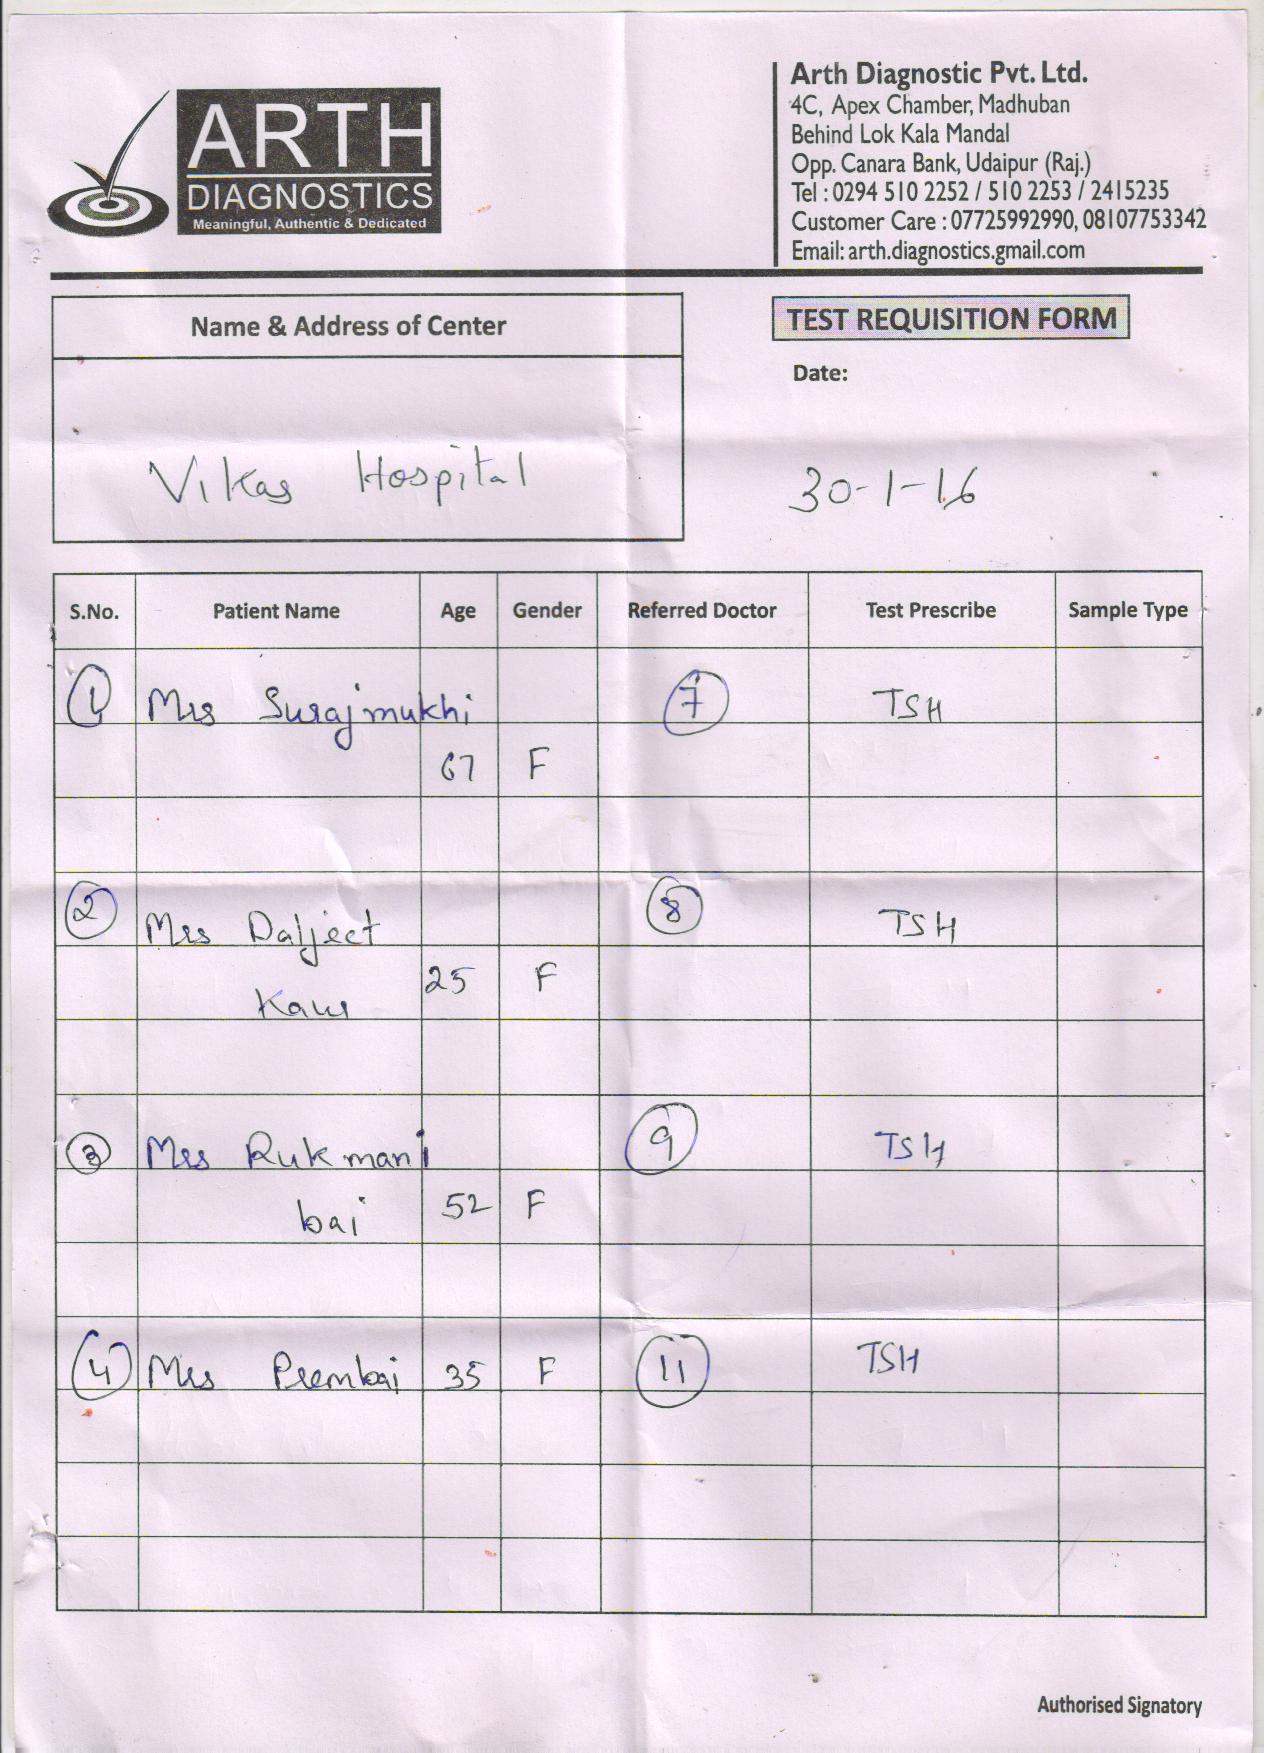 ARTH
DIAGNOSTICS
Meaningful, Authentic & Dedicated
Arth Diagnostic Pvt. Ltd.
4C, Apex Chamber, Madhuban
Behind Lok Kala Mandal
Opp. Canara Bank, Udaipur (Raj.)
Tel : 0294 510 2252 / 510 2253 / 2415235
Customer Care : 07725992990, 08107753342
Email: arth.diagnostics.gmail.com
Name & Address of Center
TEST REQUISITION FORM
Date:
Vikas Hospital
30-1-16
S.No. Patient Name Age Gender Referred Doctor Test Prescribe Sample Type
1 Mrs Surajmukhi 7 TSH
67 F
2 Mrs Daljeet 8 TSH
Kaur 25 F
3 Mrs Rukmani 9 TSH
bai 52 F
4 Mrs Prembai 35 F 11 TSH
Authorised Signatory